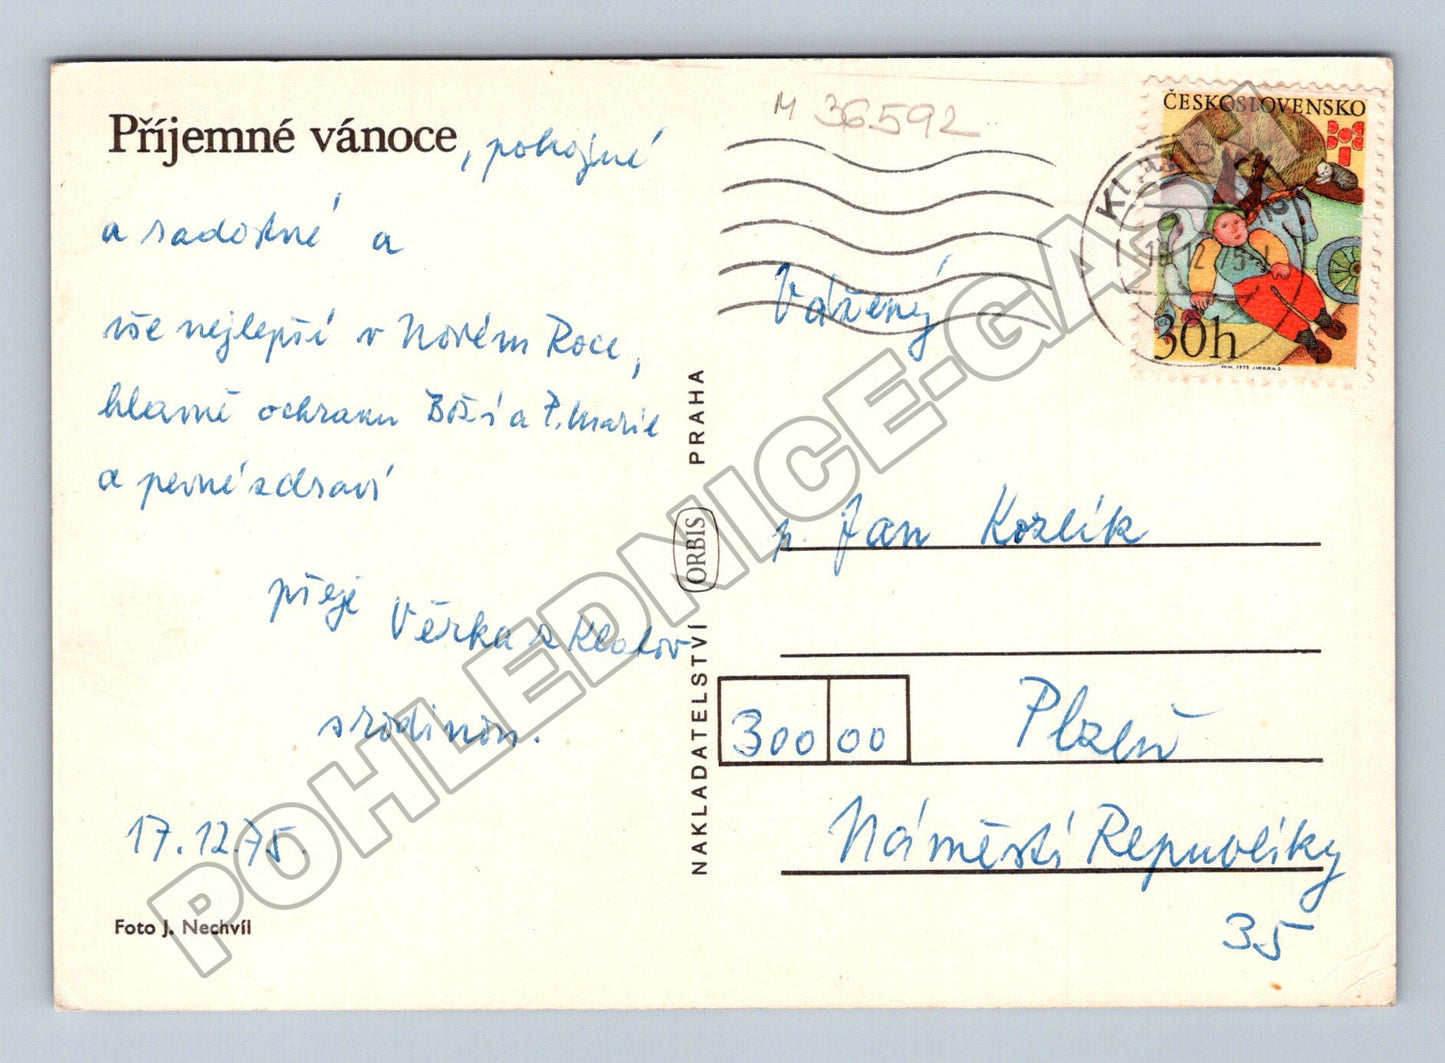 Příjemné vánoce, pokojné
a radostné a
vše nejlepší v Novém Roce,
hlavně ochranu Boží a P. Marie
a pevné zdraví
přeje Věrka z Klatov
s rodinou.
17.12.75.
Foto J. Nechvíl
NAKLADATELSTVÍ ORBIS PRAHA
M 36592
ČESKOSLOVENSKO
30h
M.H. 1975 JINDRA S.
18 12 75
Vážený
p. Jan Kozlík
300 00 Plzeň
Náměstí Republiky
35
POHLEDNICE-GARTH